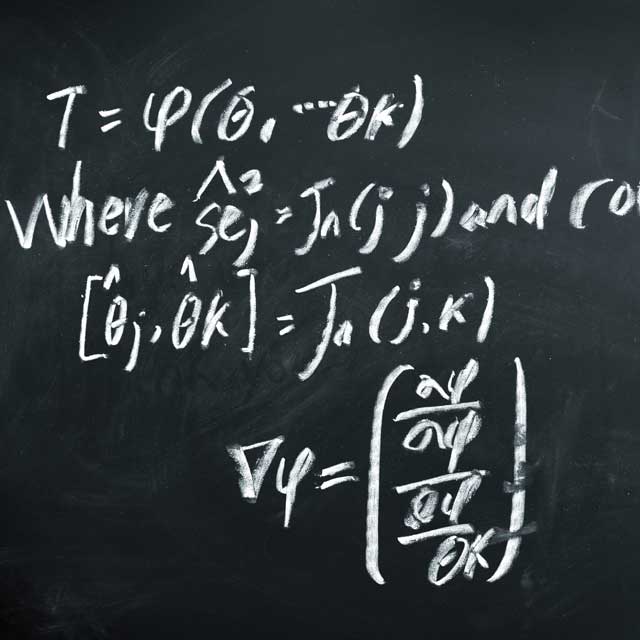 T = φ(θ, ...θk)
where ŝe²j = Jn(j j) and co
[θ̂j, θ̂k] = Jn(j,k)
∇φ = (∂φ/∂φ ∂φ/θk)